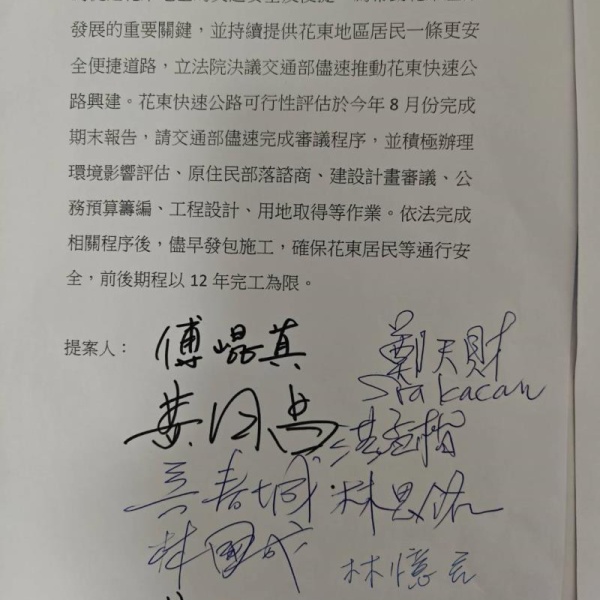 發展的重要關鍵，並持續提供花東地區居民一條更安
全便捷道路，立法院決議交通部儘速推動花東快速公
路興建。花東快速公路可行性評估於今年 8 月份完成
期末報告，請交通部儘速完成審議程序，並積極辦理
環境影響評估、原住民部落諮商、建設計畫審議、公
務預算籌編、工程設計、用地取得等作業。依法完成
相關程序後，儘早發包施工，確保花東居民等通行安
全，前後期程以 12 年完工為限。
提案人：
傅崐萁
鄭天財
Sra Kacaw
林思銘
林國成
林憶君